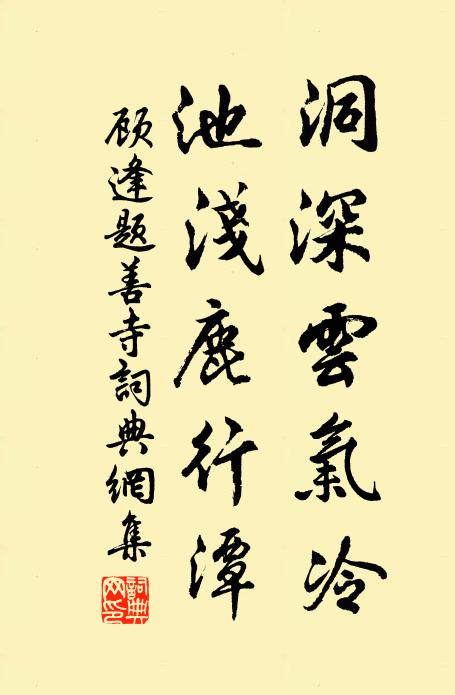 洞深雲氣冷
池淺鹿行潭
顾逢题善寺詞典網集
詞典網印